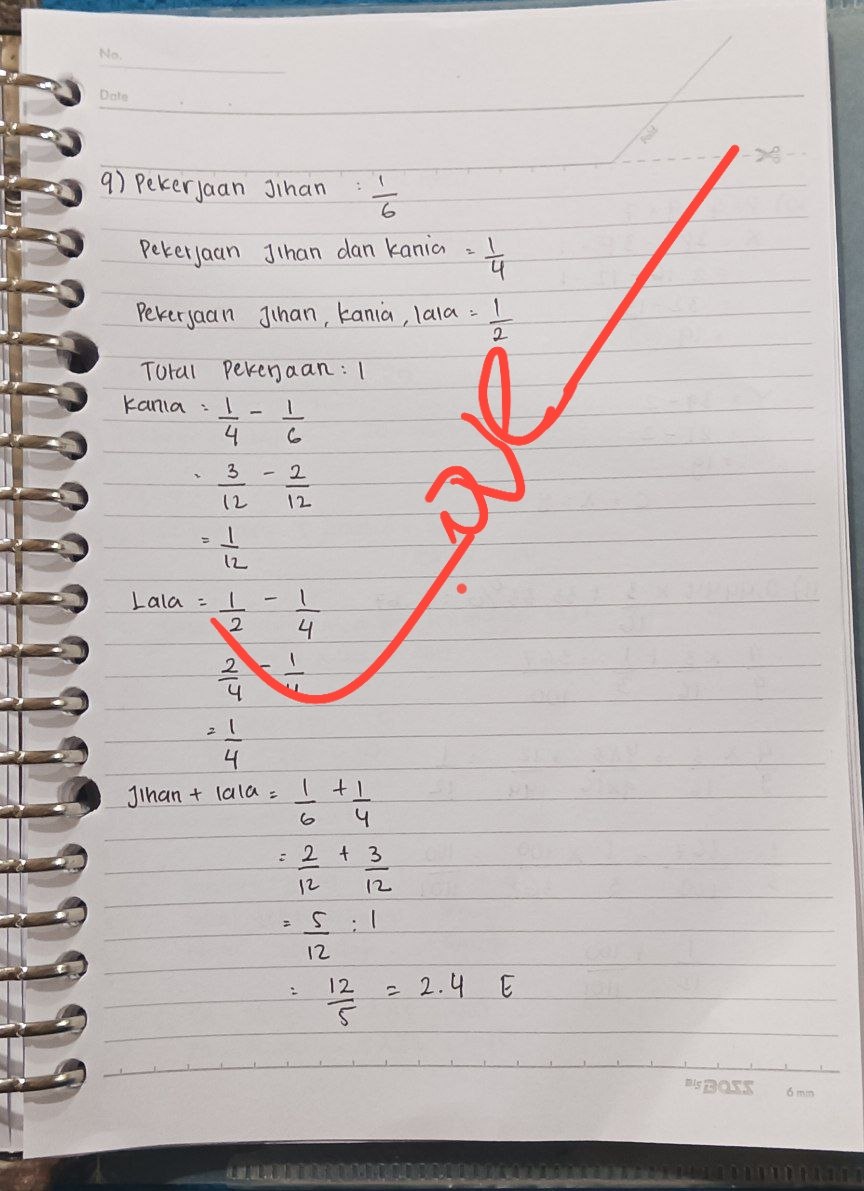 No.
Date
Fold
9) Pekerjaan Jihan : 1/6
Pekerjaan Jihan dan kania = 1/4
Pekerjaan Jihan, kania, lala = 1/2
Total Pekerjaan : 1
Kania = 1/4 - 1/6
= 3/12 - 2/12
= 1/12
Lala = 1/2 - 1/4
2/4 - 1/4
= 1/4
Jihan + lala = 1/6 + 1/4
= 2/12 + 3/12
= 5/12 : 1
= 12/5 = 2.4 E
BOSS 6 mm